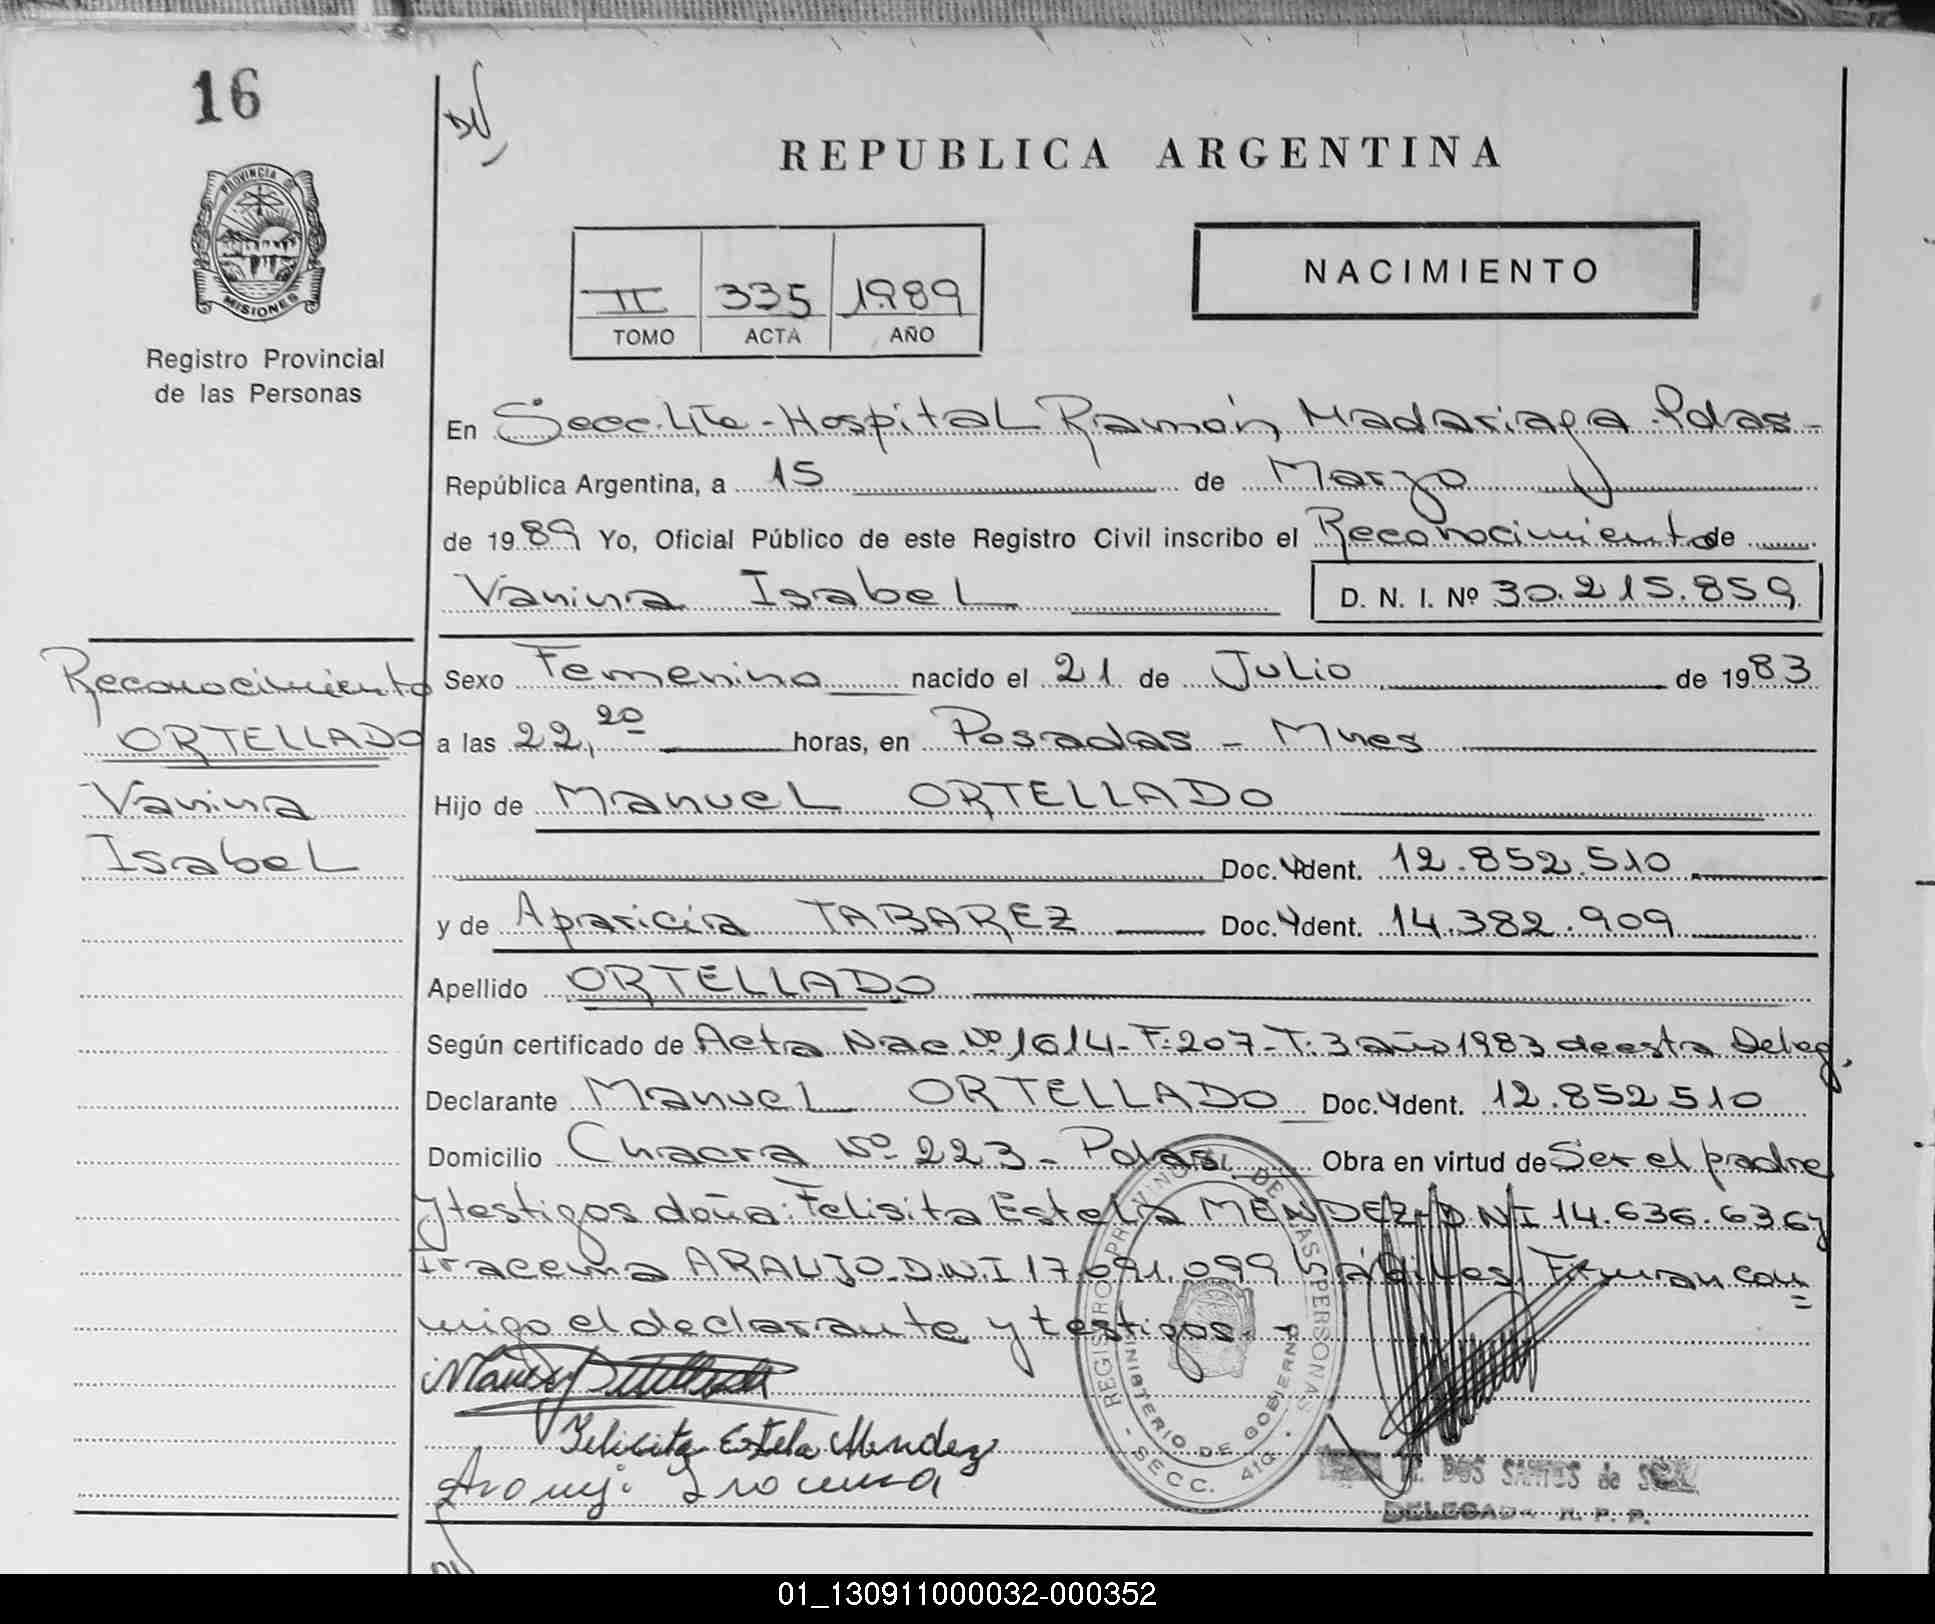 16
PROVINCIA DE
MISIONES
Registro Provincial
de las Personas
REPUBLICA ARGENTINA
II 335 1989
TOMO ACTA AÑO
NACIMIENTO
En Secc. 41a - Hospital Ramón Madariaga. Pdas -
República Argentina, a 15 de Marzo
de 1989 Yo, Oficial Público de este Registro Civil inscribo el Reconocimiento de
Vanina Isabel D. N. I. Nº 30.215.859
Reconocimiento
ORTELLADO
Vanina
Isabel
Sexo Femenino nacido el 21 de Julio de 1983
a las 22,20 horas, en Posadas - Mnes
Hijo de Manuel ORTELLADO
Doc. Ydent. 12.852.510
y de Aparicia TABAREZ Doc. Ydent. 14.382.909
Apellido ORTELLADO
Según certificado de Acta Nac. Nº 1614 - F: 207 - T: 3 año 1983 de esta Deleg.
Declarante Manuel ORTELLADO Doc. Ydent. 12.852510
Domicilio Chacra Nº 223 - Pdas. Obra en virtud de Ser el padre
y testigos doña: Felisita Estela MENDEZ - DNI 14.636.636 y
Iracema ARAUJO. D.N.I 17.091.099 hábiles. Firman con
migo el declarante y testigos. -
Manuel Ortellado
Felicita Estela Mendez
Arauj: Iracema
REGISTRO PROVINCIAL DE LAS PERSONAS
MINISTERIO DE GOBIERNO
- SECC. 41a. -
DOS SANTOS de
DELEGADA R. P. P.
01_130911000032-000352